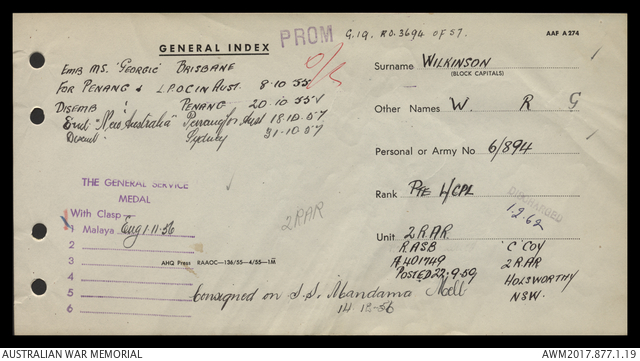 PROM
G.19. R.O. 3694 OF 57.
AAF A 274
GENERAL INDEX
EMB MS. "GEORGIC" BRISBANE
FOR PENANG & L.P.O.C IN AUST. 8·10·55
DISEMB PENANG 20·10·55
Emb "New Australia" Penang for Aust 18·10·57
Disemb Sydney 31·10·57
Surname WILKINSON
(BLOCK CAPITALS)
Other Names W. R G
Personal or Army No 6/894
Rank PTE L/CPL
DISCHARGED
1.2.62
Unit 2 RAR
RASB 'C' COY
A401749 2 RAR
POSTED 22·9·59 HOLSWORTHY
NSW.
THE GENERAL SERVICE
MEDAL
With Clasp
1 Malaya Eng 1·11·56
2
3
4
5
6
2RAR
AHQ Press RAAOC—136/55—4/55—1M
Consigned on S.S. Mandama Melb
14·12·56
AUSTRALIAN WAR MEMORIAL
AWM2017.877.1.19